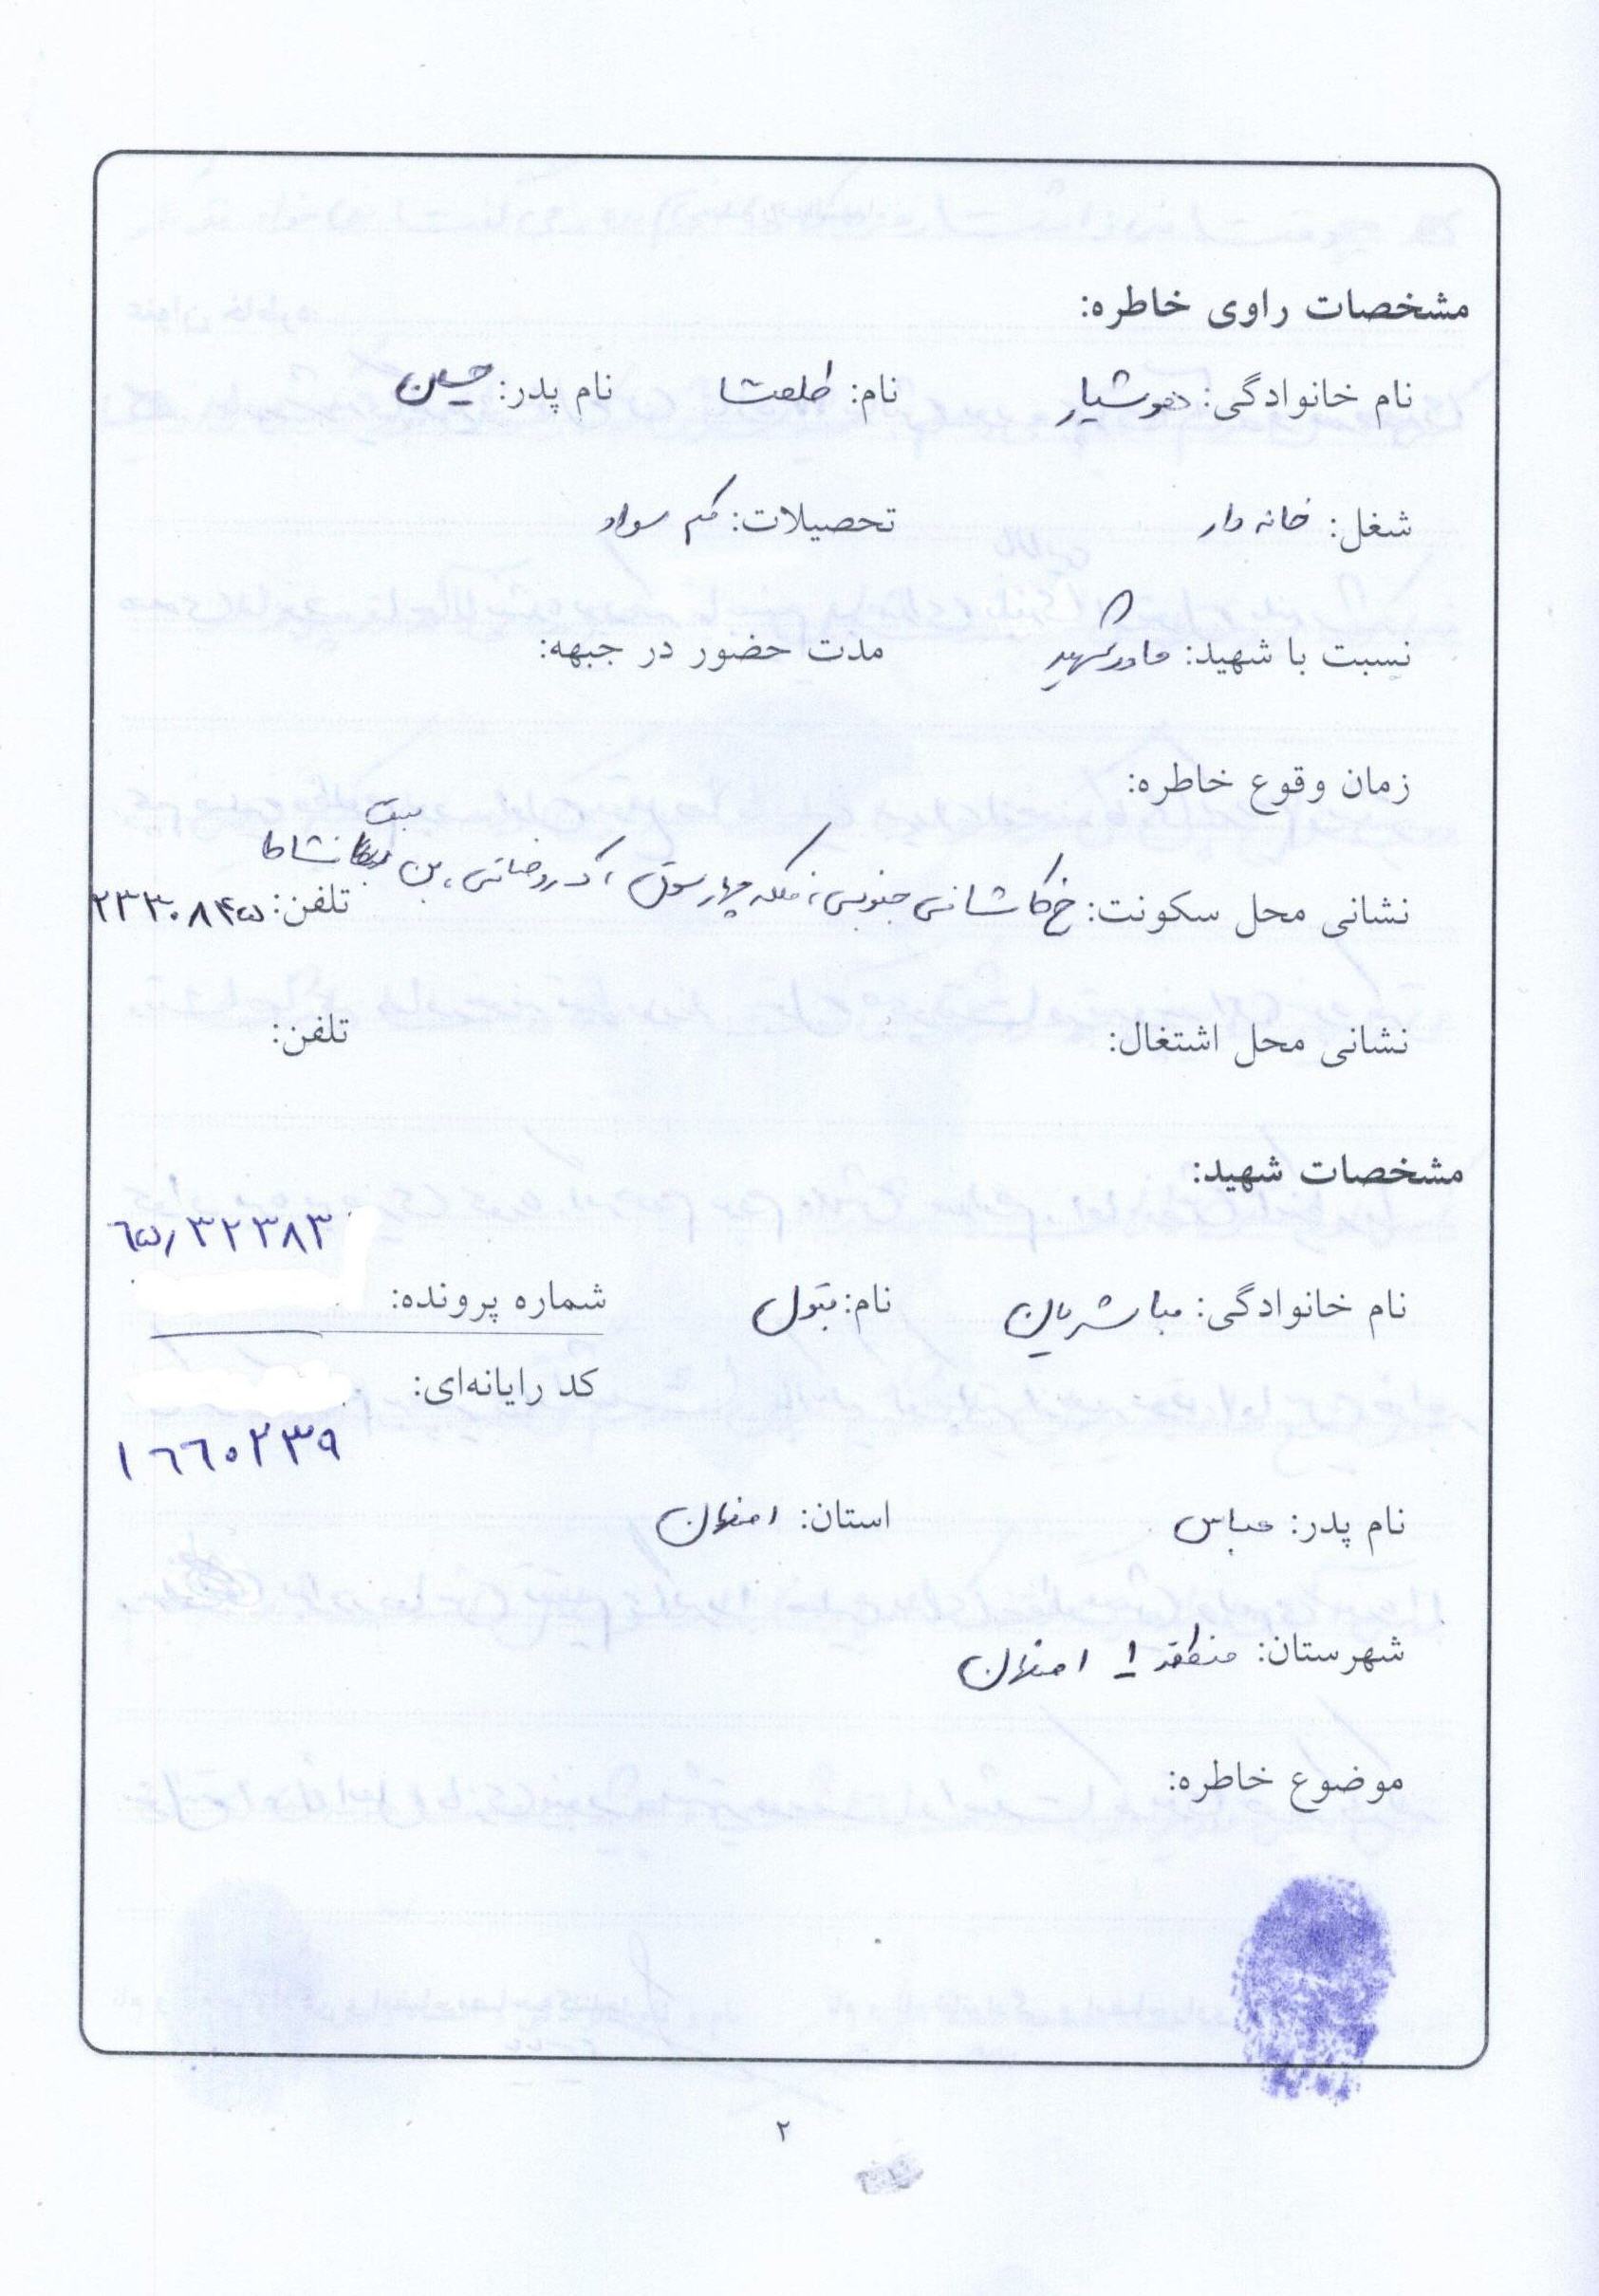 مشخصات راوی خاطره:
نام خانوادگی: هوشیار نام: طلعت نام پدر: حسین
شغل: خانه دار تحصیلات: کم سواد
نسبت با شهید: مادر شهید مدت حضور در جبهه:
زمان وقوع خاطره:
نشانی محل سکونت: خ کاشانی جنوبی، فلکه چهارسوق، ک روضاتی، بن بست نشاط تلفن: ۲۳۳۰۸۴۵
نشانی محل اشتغال: تلفن:
مشخصات شهید:
۶۵/۳۲۳۸۳
نام خانوادگی: مباشریان نام: بتول شماره پرونده:
کد رایانه‌ای:
۱۶۶۰۲۳۹
نام پدر: عباس استان: اصفهان
شهرستان: منطقه ۱ اصفهان
موضوع خاطره:
۲